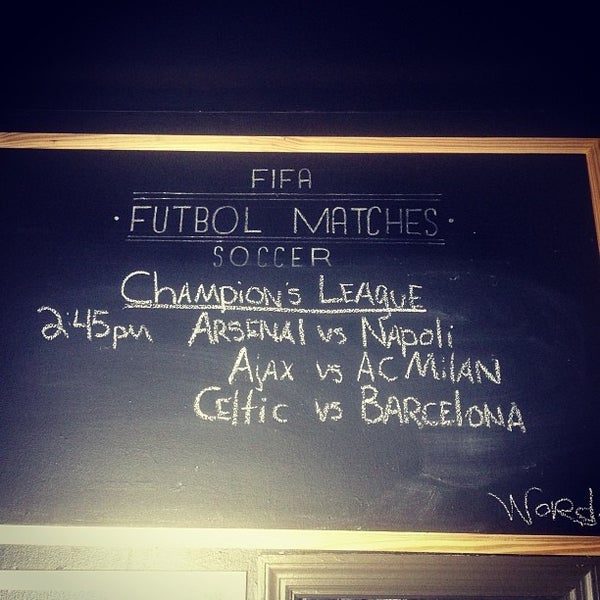 FIFA
· FUTBOL MATCHES ·
SOCCER
CHAMPION'S LEAGUE
2:45pm ARSENAL vs NAPOLI
AJAX vs AC MILAN
CELTIC vs BARCELONA
WORD